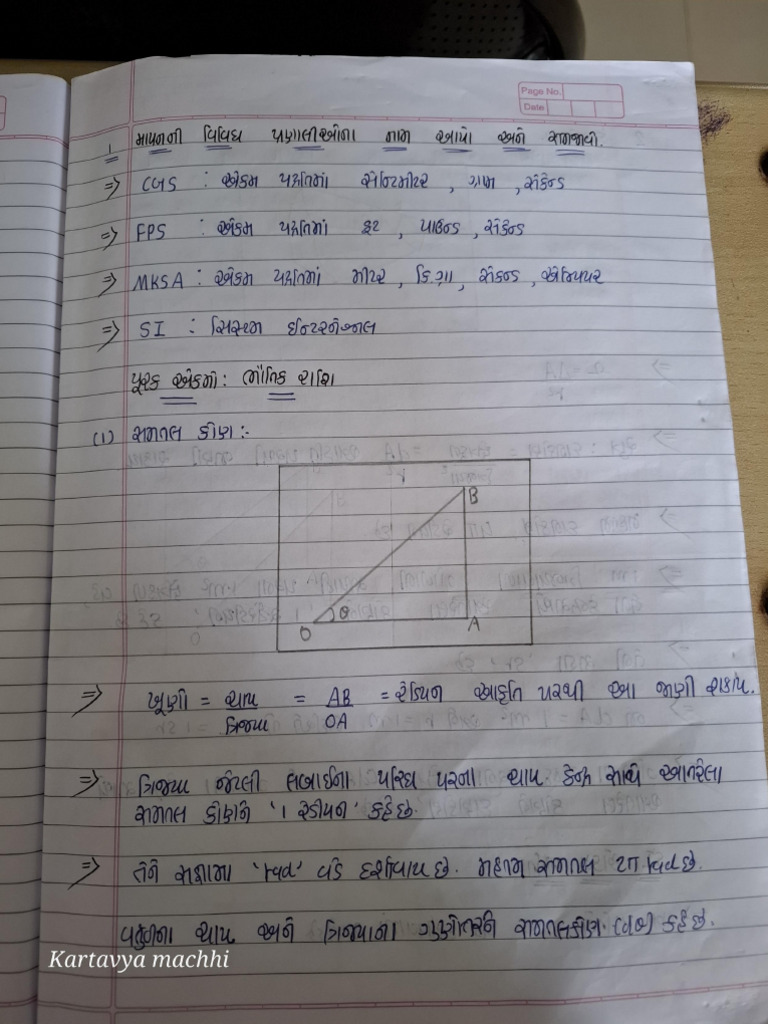 Page No.
Date
1 માપનની વિવિધ પ્રણાલીઓના નામ આપો અને સમજાવો.
=> CGS : એકમ પદ્ધતિમાં સેન્ટિમીટર , ગ્રામ , સેકન્ડ
=> FPS : એકમ પદ્ધતિમાં ફૂટ , પાઉન્ડ , સેકન્ડ
=> MKSA : એકમ પદ્ધતિમાં મીટર , કિ.ગ્રા , સેકન્ડ , એમ્પિયર
=> SI : સિસ્ટમ ઈન્ટરનેશ્નલ
પૂરક એકમો : ભૌતિક રાશિ
(1) સમતલ કોણ :-
B
O θ A
=> ખૂણો = ચાપ / ત્રિજ્યા = AB / OA = રેડિયન આકૃતિ પરથી આ જાણી શકાય.
=> ત્રિજ્યા જેટલી લંબાઈના પરિઘ પરના ચાપ કેન્દ્ર સાથે આંતરેલા
સમતલ કોણને '1 રેડીયન' કહે છે.
=> તેને સંજ્ઞામા 'rad' વડે દર્શાવાય છે. મહત્તમ સમતલ 2π rad છે.
વર્તુળના ચાપ અને ત્રિજ્યાના ગુણોત્તરને સમતલકોણ (dθ) કહે છે.
Kartavya machhi